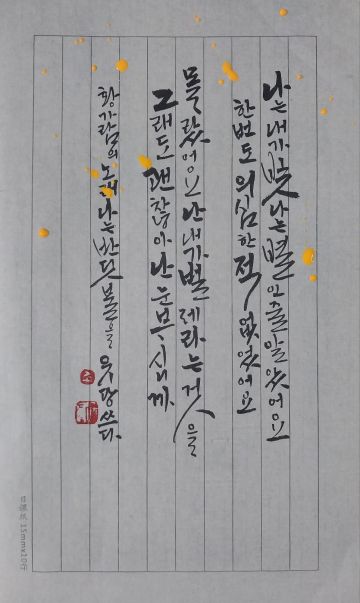 나는 내가 빛나는 별인 줄 알았어요
한번도 의심한 적 없었어요
몰랐어요 난 내가 벌레라는 것을
그래도 괜찮아 난 눈부시니까
황가람의 노래 나는 반딧불을 쓰다.
15mm×10行